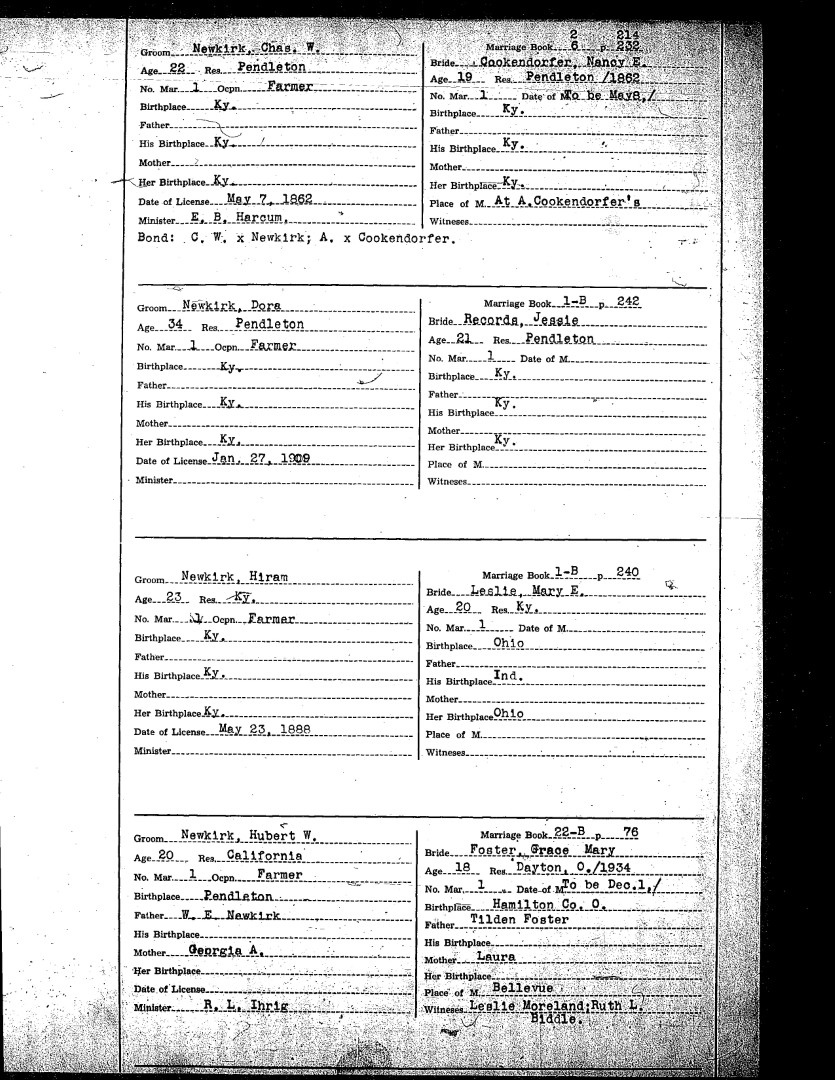 Groom Newkirk, Chas. W.
Age 22 Res. Pendleton
No. Mar. 1 Ocpn. Farmer
Birthplace Ky.
Father
His Birthplace Ky.
Mother
Her Birthplace Ky.
Date of License May 7, 1862
Minister E. B. Harcum.
2 214
Marriage Book 6 p. 232
Bride Cookendorfer, Nancy E.
Age 19 Res. Pendleton /1862
No. Mar. 1 Date of M. To be May8,/
Birthplace Ky.
Father
His Birthplace Ky.
Mother
Her Birthplace Ky.
Place of M. At A.Cookendorfer's
Witnesses
Bond: C. W. x Newkirk; A. x Cookendorfer.
Groom Newkirk, Dora
Age 34 Res. Pendleton
No. Mar. 1 Ocpn. Farmer
Birthplace Ky.
Father
His Birthplace Ky.
Mother
Her Birthplace Ky.
Date of License Jan. 27, 1909
Minister
Marriage Book 1-B p. 242
Bride Records, Jessie
Age 21 Res. Pendleton
No. Mar. 1 Date of M.
Birthplace Ky.
Father
His Birthplace Ky.
Mother
Her Birthplace Ky.
Place of M.
Witnesses
Groom Newkirk, Hiram
Age 23 Res. Ky.
No. Mar. 1 Ocpn. Farmer
Birthplace Ky.
Father
His Birthplace Ky.
Mother
Her Birthplace Ky.
Date of License May 23, 1888
Minister
Marriage Book 1-B p. 240
Bride Leslie, Mary E.
Age 20 Res. Ky.
No. Mar. 1 Date of M.
Birthplace Ohio
Father
His Birthplace Ind.
Mother
Her Birthplace Ohio
Place of M.
Witnesses
Groom Newkirk, Hubert W.
Age 20 Res. California
No. Mar. 1 Ocpn. Farmer
Birthplace Pendleton
Father W. E. Newkirk
His Birthplace
Mother Georgia A.
Her Birthplace
Date of License
Minister R. L. Ihrig
Marriage Book 22-B p. 76
Bride Foster, Grace Mary
Age 18 Res. Dayton, O./1934
No. Mar. 1 Date of M. To be Dec.1,/
Birthplace Hamilton Co. O.
Father Tilden Foster
His Birthplace
Mother Laura
Her Birthplace
Place of M. Bellevue
Witnesses Leslie Moreland;Ruth L.
Biddle.